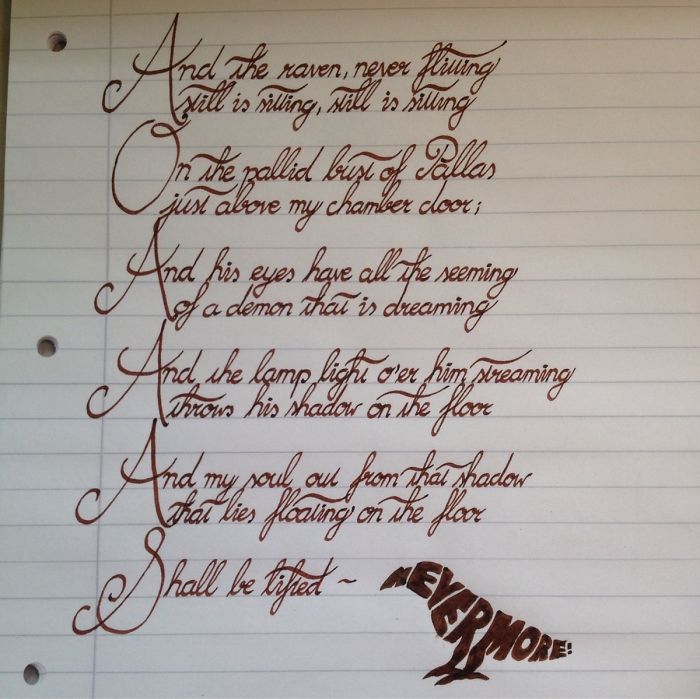 And the raven, never flitting
still is sitting, still is sitting
On the pallid bust of Pallas
just above my chamber door;
And his eyes have all the seeming
of a demon that is dreaming
And the lamp light o'er him streaming
throws his shadow on the floor
And my soul out from that shadow
that lies floating on the floor
Shall be lifted ~ NEVERMORE!